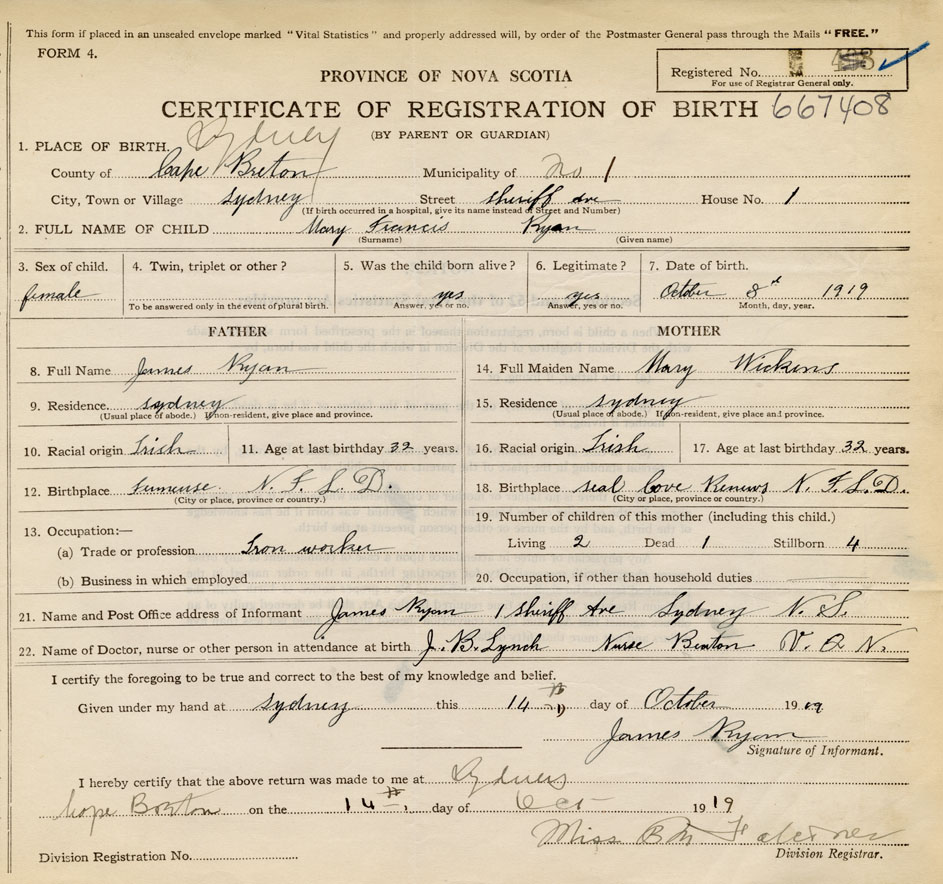 This form if placed in an unsealed envelope marked "Vital Statistics" and properly addressed will, by order of the Postmaster General pass through the Mails "FREE."
FORM 4.
Registered No.
For use of Registrar General only.
PROVINCE OF NOVA SCOTIA
CERTIFICATE OF REGISTRATION OF BIRTH 667408
(BY PARENT OR GUARDIAN)
Sydney
1. PLACE OF BIRTH.
County of Cape Breton Municipality of No 1
City, Town or Village Sydney Street Sheriff Ave House No. 1
(If birth occurred in a hospital, give its name instead of Street and Number)
2. FULL NAME OF CHILD Mary Francis Ryan
(Surname) (Given name)
3. Sex of child. 4. Twin, triplet or other? 5. Was the child born alive? 6. Legitimate? 7. Date of birth.
female yes yes October 8th 1919
To be answered only in the event of plural birth. Answer, yes or no. Answer, yes or no. Month, day, year.
FATHER MOTHER
8. Full Name James Ryan 14. Full Maiden Name Mary Wickens
9. Residence. Sydney 15. Residence Sydney
(Usual place of abode.) If non-resident, give place and province. (Usual place of abode.) If non-resident, give place and province.
10. Racial origin Irish 11. Age at last birthday 39 years. 16. Racial origin Irish 17. Age at last birthday 32 years.
12. Birthplace N. F. L. D. 18. Birthplace seal Cove Renews N. F. L. D.
(City or place, province or country.) (City or place, province or country.)
13. Occupation:— 19. Number of children of this mother (including this child.)
(a) Trade or profession Iron worker Living 2 Dead 1 Stillborn 4
(b) Business in which employed 20. Occupation, if other than household duties
21. Name and Post Office address of Informant James Ryan 1 Sheriff Ave Sydney N. S.
22. Name of Doctor, nurse or other person in attendance at birth J. B. Lynch Nurse Benton V. O N.
I certify the foregoing to be true and correct to the best of my knowledge and belief.
Given under my hand at Sydney this 14th day of October 1919
James Ryan
Signature of Informant.
I hereby certify that the above return was made to me at Sydney
Cape Breton on the 14th day of Oct 1919
Miss B M
Division Registration No. Division Registrar.